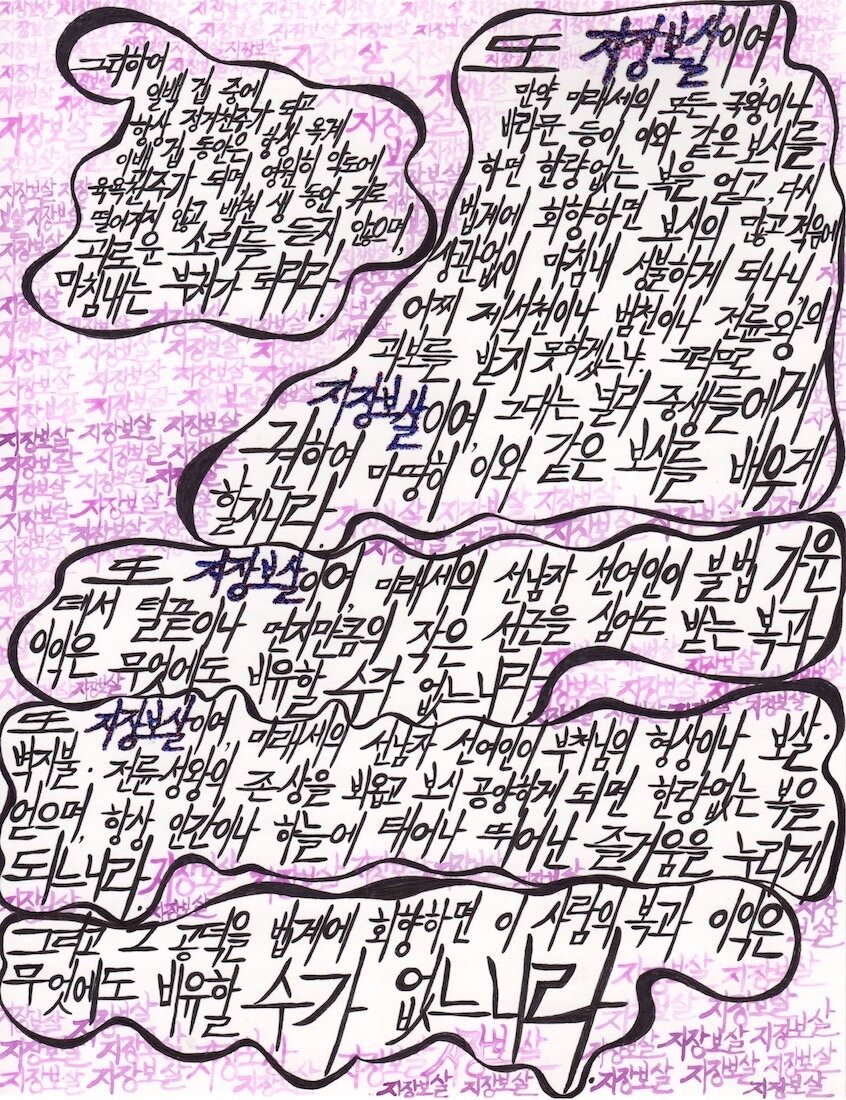 그리하여
일백 겁 중에
항상 정거천주가 되고
이백 겁 동안은 항상 욕계
육욕천주가 되며, 영원히 악도에
떨어지지 않고 백천 생 동안 귀로
괴로운 소리를 듣지 않으며,
마침내는 부처가 되리라.
또 지장보살이여,
만약 미래세의 모든 국왕이나
바라문 등이 이와 같은 보시를
하면 한량없는 복을 얻고, 다시
법계에 회향하면 보시의 많고 적음에
상관없이 마침내 성불하게 되나니,
어찌 제석천이나 범천이나 전륜왕의
과보를 받지 못하겠느냐. 그러므로
지장보살이여, 그대는 널리 중생들에게
권하여 마땅히 이와 같은 보시를 배우게
할지니라.
또 지장보살이여, 미래세의 선남자 선여인이 불법 가운
데서 털끝이나 먼지만큼의 작은 선근을 심어도 받는 복과
이익은 무엇에도 비유할 수가 없느니라.
또 지장보살이여, 미래세의 선남자 선여인이 부처님의 형상이나 보살.
벽지불. 전륜성왕의 존상을 뵈옵고 보시 공양하게 되면 한량없는 복을
얻으며, 항상 인간이나 하늘에 태어나 뛰어난 즐거움을 누리게
되느니라.
그리고 그 공덕을 법계에 회향하면 이 사람의 복과 이익은
무엇에도 비유할 수가 없느니라.
지장보살 지장보살
지장보살 지장보살 지장보살